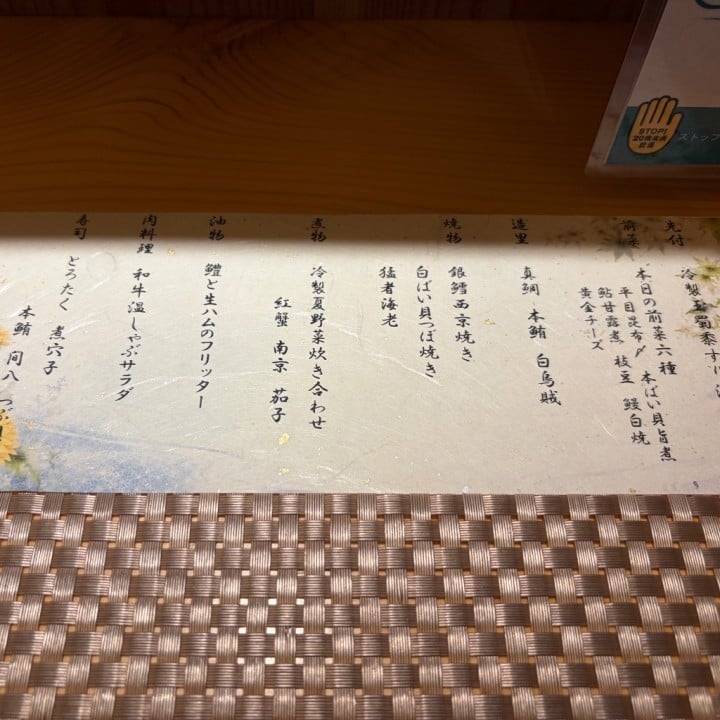 先付
冷製玉蜀黍すり流
前菜
本日の前菜六種
本ばい貝旨煮
平目昆布〆
鰻白焼
鮎甘露煮 枝豆
黄金チーズ
造里
真鯛 本鮪 白烏賊
焼物
銀鱈西京焼き
白ばい貝つぼ焼き
猛者海老
煮物
冷製夏野菜炊き合わせ
紅蟹 南京 茄子
油物
鱧と生ハムのフリッター
肉料理
和牛温しゃぶサラダ
寿司
とろたく 煮穴子
本鮪 間八 つぶ
STOP!
ストップ